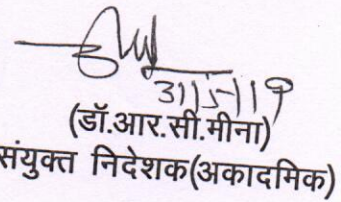 31/5/19
(डॉ.आर.सी.मीना)
संयुक्त निदेशक(अकादमिक)